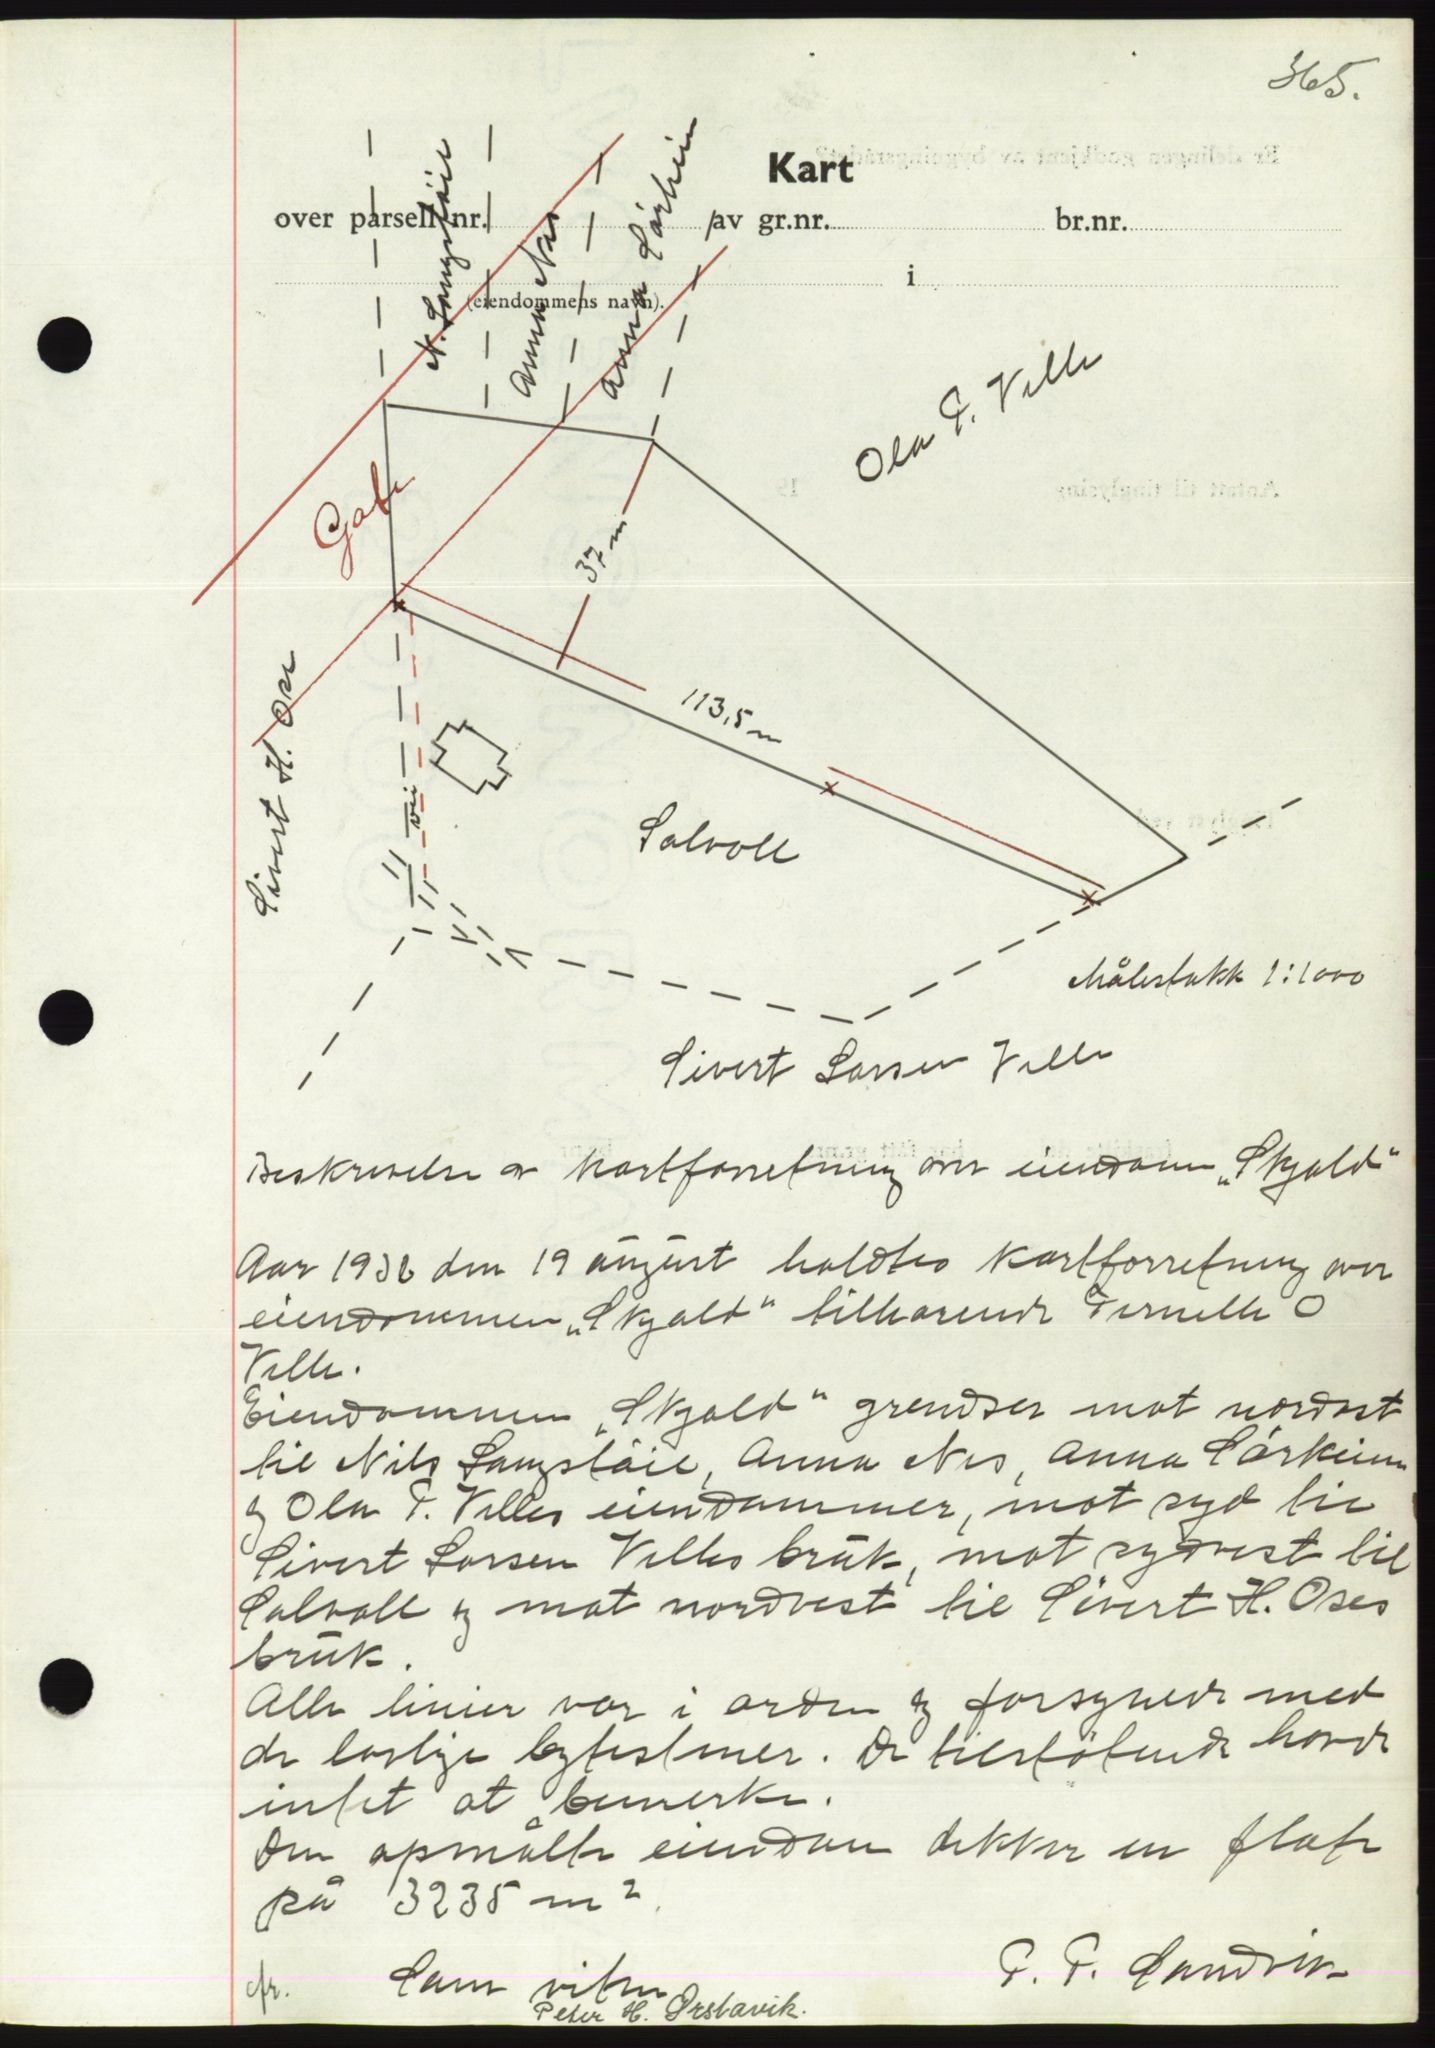 365.
Kart
over parsell nr. av gr.nr. br.nr.
i
(eiendommens navn).
N. Langstöil
Anna Nes
Anna Sörheim
Ola P. Velle
Gate
37 m
113,5 m
Sivert H. Ose
vei
Solvoll
Målestokk 1:1000
Sivert Larsen Velle
Beskrivelse av kartforretning over eiendom „Skjold"
Aar 1938 den 19 august holdtes kartforretning over
eiendommen „Skjold" tilhørende Pernille O
Velle.
Eiendommen „Skjold" grendser mot nordøst
til Nils Langstöil, Anna Nes, Anna Sörheim
og Ola P. Velles eiendommer, mot syd til
Sivert Larsen Velles bruk, mot sydvest til
Solvoll og mot nordvest til Sivert H. Oses
bruk.
Alle linier var i orden og forsynede med
de lovlige bytestener. De tilstötende havde
intet at bemerke.
Den opmålte eiendom dekker en flate
på 3235 m²
P. P. Sandvik
cfr. Som vitne
Peter H. Ørstavik.